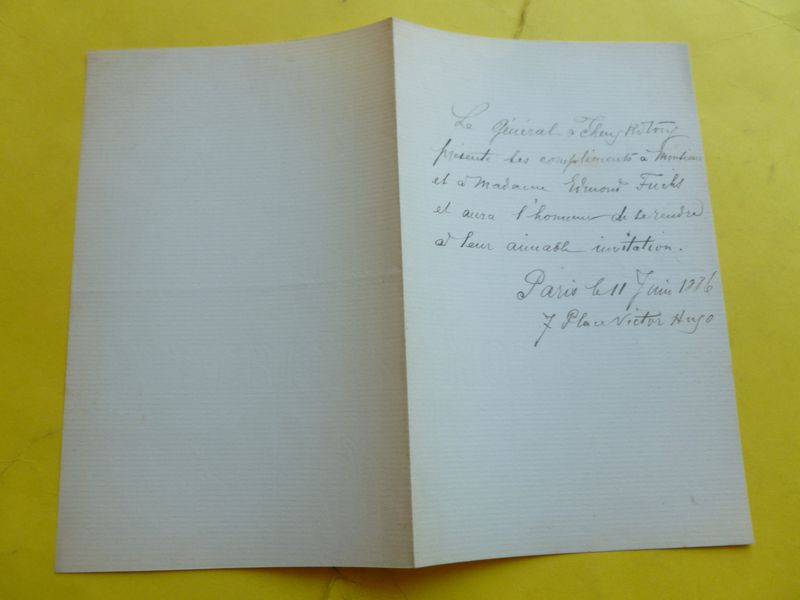 Le Général Tcheng Ki tong
présente ses compliments à Monsieur
et à Madame Edmond Fuchs
et aura l'honneur de se rendre
à leur aimable invitation.
Paris le 11 Juin 1886
7 Place Victor Hugo